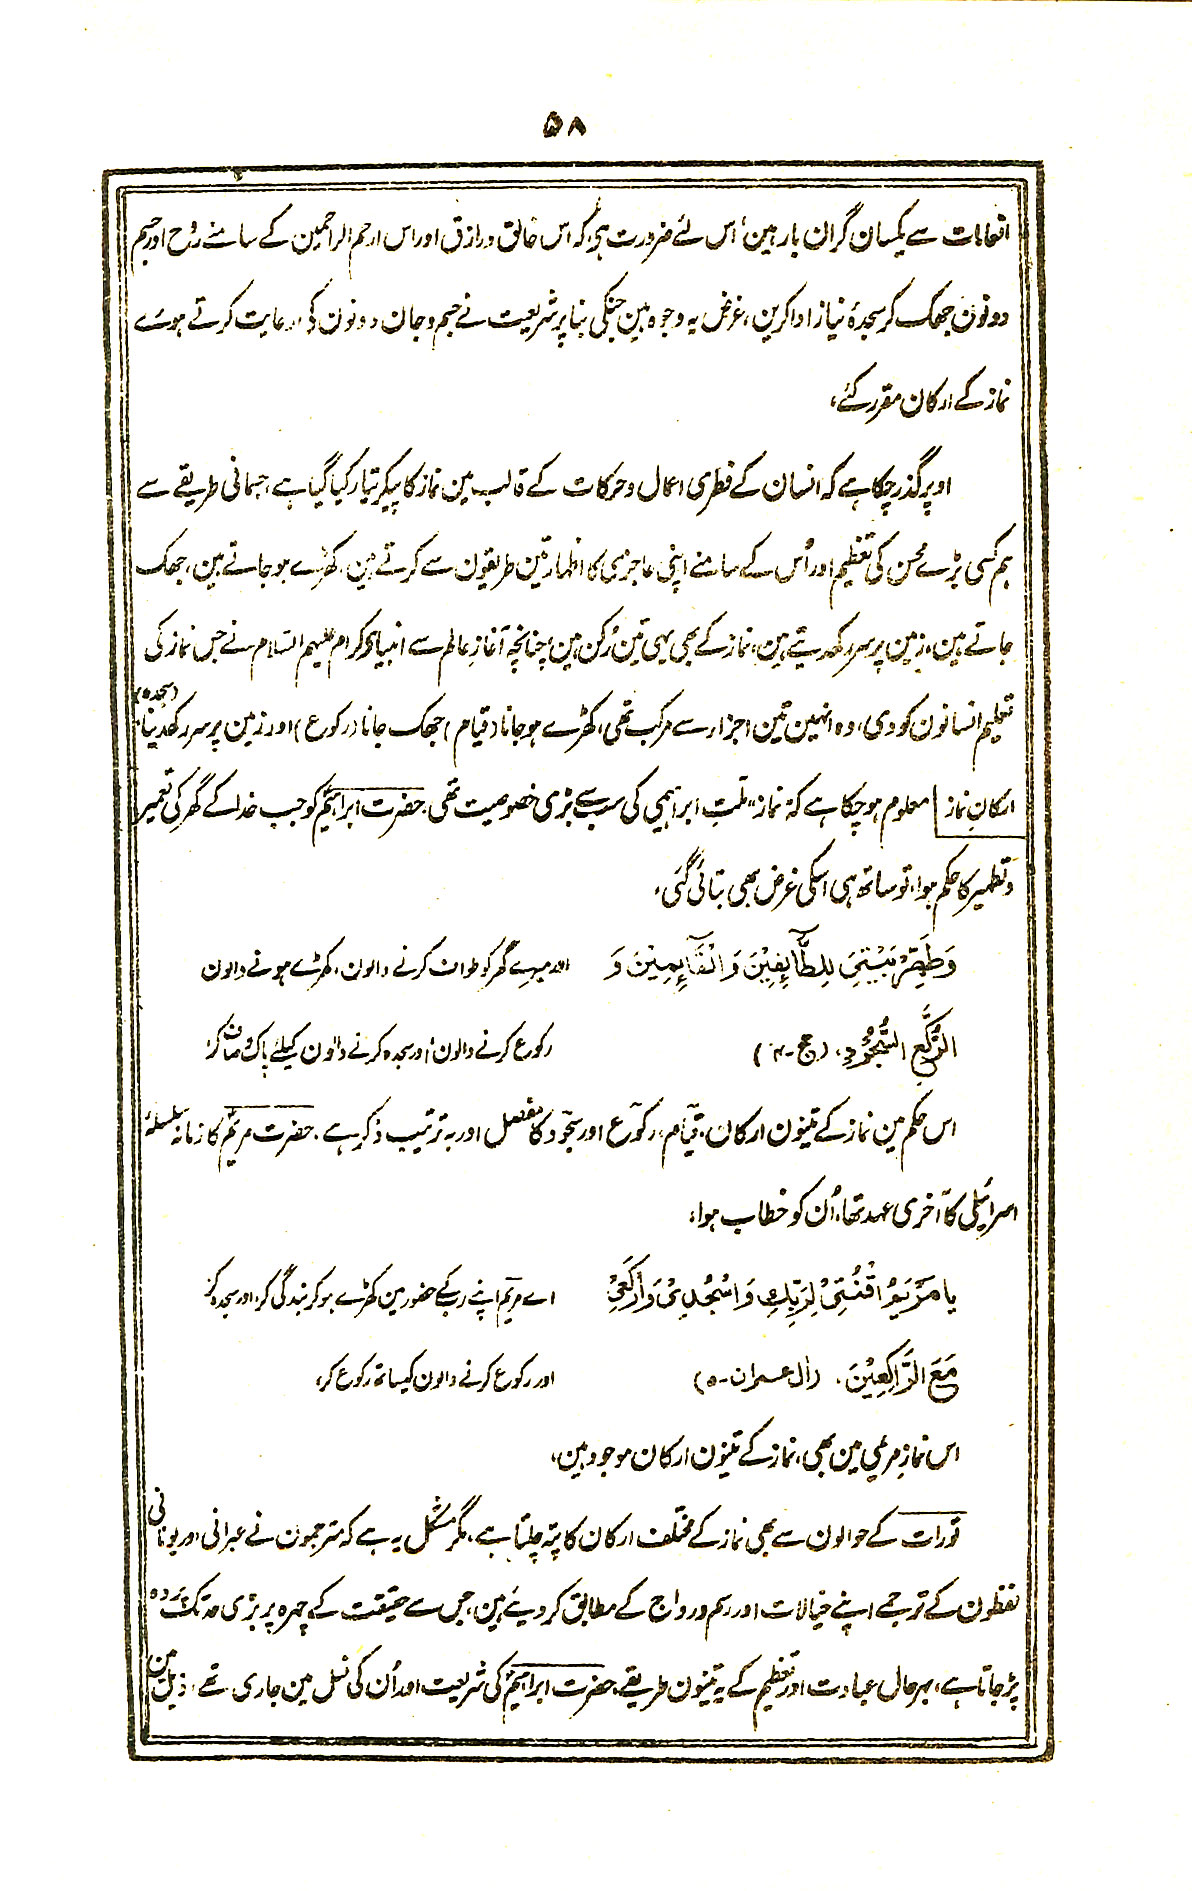 ۵۸
انعامات سے یکسان گران بار ہین، اس لئے ضرورت ہی، کہ اس خالق و رازق اور اس ارحم الراحمین کے سامنے رُوح اور جسم
دونون جھک کر سجدۂ نیاز ادا کرین، غرض یہ وجوہ ہین جنکی بنا پر شریعت نے جسم و جان دونون کی رعایت کرتے ہوے
نماز کے ارکان مقرر کئے،
اوپر گذر چکا ہے کہ انسان کے فطری اعمال و حرکات کے قالب مین نماز کا پیکر تیار کیا گیا ہے، جسمانی طریقے سے
ہم کسی بڑے محسن کی تعظیم اور اُس کے سامنے اپنی عاجزی کا اظہار تین طریقون سے کرتے ہین، کھڑے ہو جاتے ہین، جھک
جاتے ہین، زمین پر سر رکھدیتے ہین، نماز کے بھی یہی تین رُکن ہین، چنانچہ آغازِ عالم سے انبیاے کرام علیہم السّلام نے جس نماز کی
تعلیم انسانون کو دی، وہ انہین تین اجزار سے مرکب تھی، کھڑے ہو جانا (قیام) جھک جانا (رکوع) اور زمین پر سر رکھدینا، (سجدہ)
ارکانِ نماز معلوم ہو چکا ہے کہ نماز، ملّتِ ابراہیمی کی سب سے بڑی خصوصیت تھی، حضرت ابراہیمؑ کو جب خدا کے گھر کی تعمیر
و تطہیر کا حکم ہوا، تو ساتھ ہی اسکی غرض بھی بتائی گئی،
وَطَهِّرْ بَيْتِيَ لِلطَّآئِفِيْنَ وَالْقَآئِمِيْنَ وَ اور میرے گھر کو طواف کرنے والون، کھڑے ہونے والون
الرُّكَّعِ السُّجُوْدِ، (حج-۴) رکوع کرنے والون اور سجدہ کرنے والون کیلئے پاک صاف کر،
اس حکم مین نماز کے تینون ارکان، قیام، رکوع اور سجود کا مفصل اور بہ ترتیب ذکر ہے، حضرت مریمؑ کا زمانہ سلسلۂ
اسرائیلی کا آخری عہد تھا، اُن کو خطاب ہوا،
يامَرْيَمُ اقْنُتِيْ لِرَبِّكِ وَاسْجُدِيْ وَارْكَعِيْ اے مریم اپنے رب کے حضور مین کھڑے ہو کر بندگی کر، اور سجدہ کر
مَعَ الرَّاكِعِيْنَ، (اٰل عمران-۵) اور رکوع کرنے والون کیساتھ رکوع کر،
اس نمازِ مریمی مین بھی، نماز کے تینون ارکان موجود ہین،
تورات کے حوالون سے بھی نماز کے مختلف ارکان کا پتہ چلتا ہے، مگر مشکل یہ ہے کہ مترجمون نے عبرانی اور یونانی
لفظون کے ترجمے اپنے خیالات اور رسم و رواج کے مطابق کر دیئے ہین، جس سے حقیقت کے چہرہ پر بڑی حد تک پردہ
پڑ جاتا ہے، بہرحال عبادت اور تعظیم کے یہ تینون طریقے، حضرت ابراہیمؑ کی شریعت اور اُن کی نسل مین جاری تھے، ذیل مین